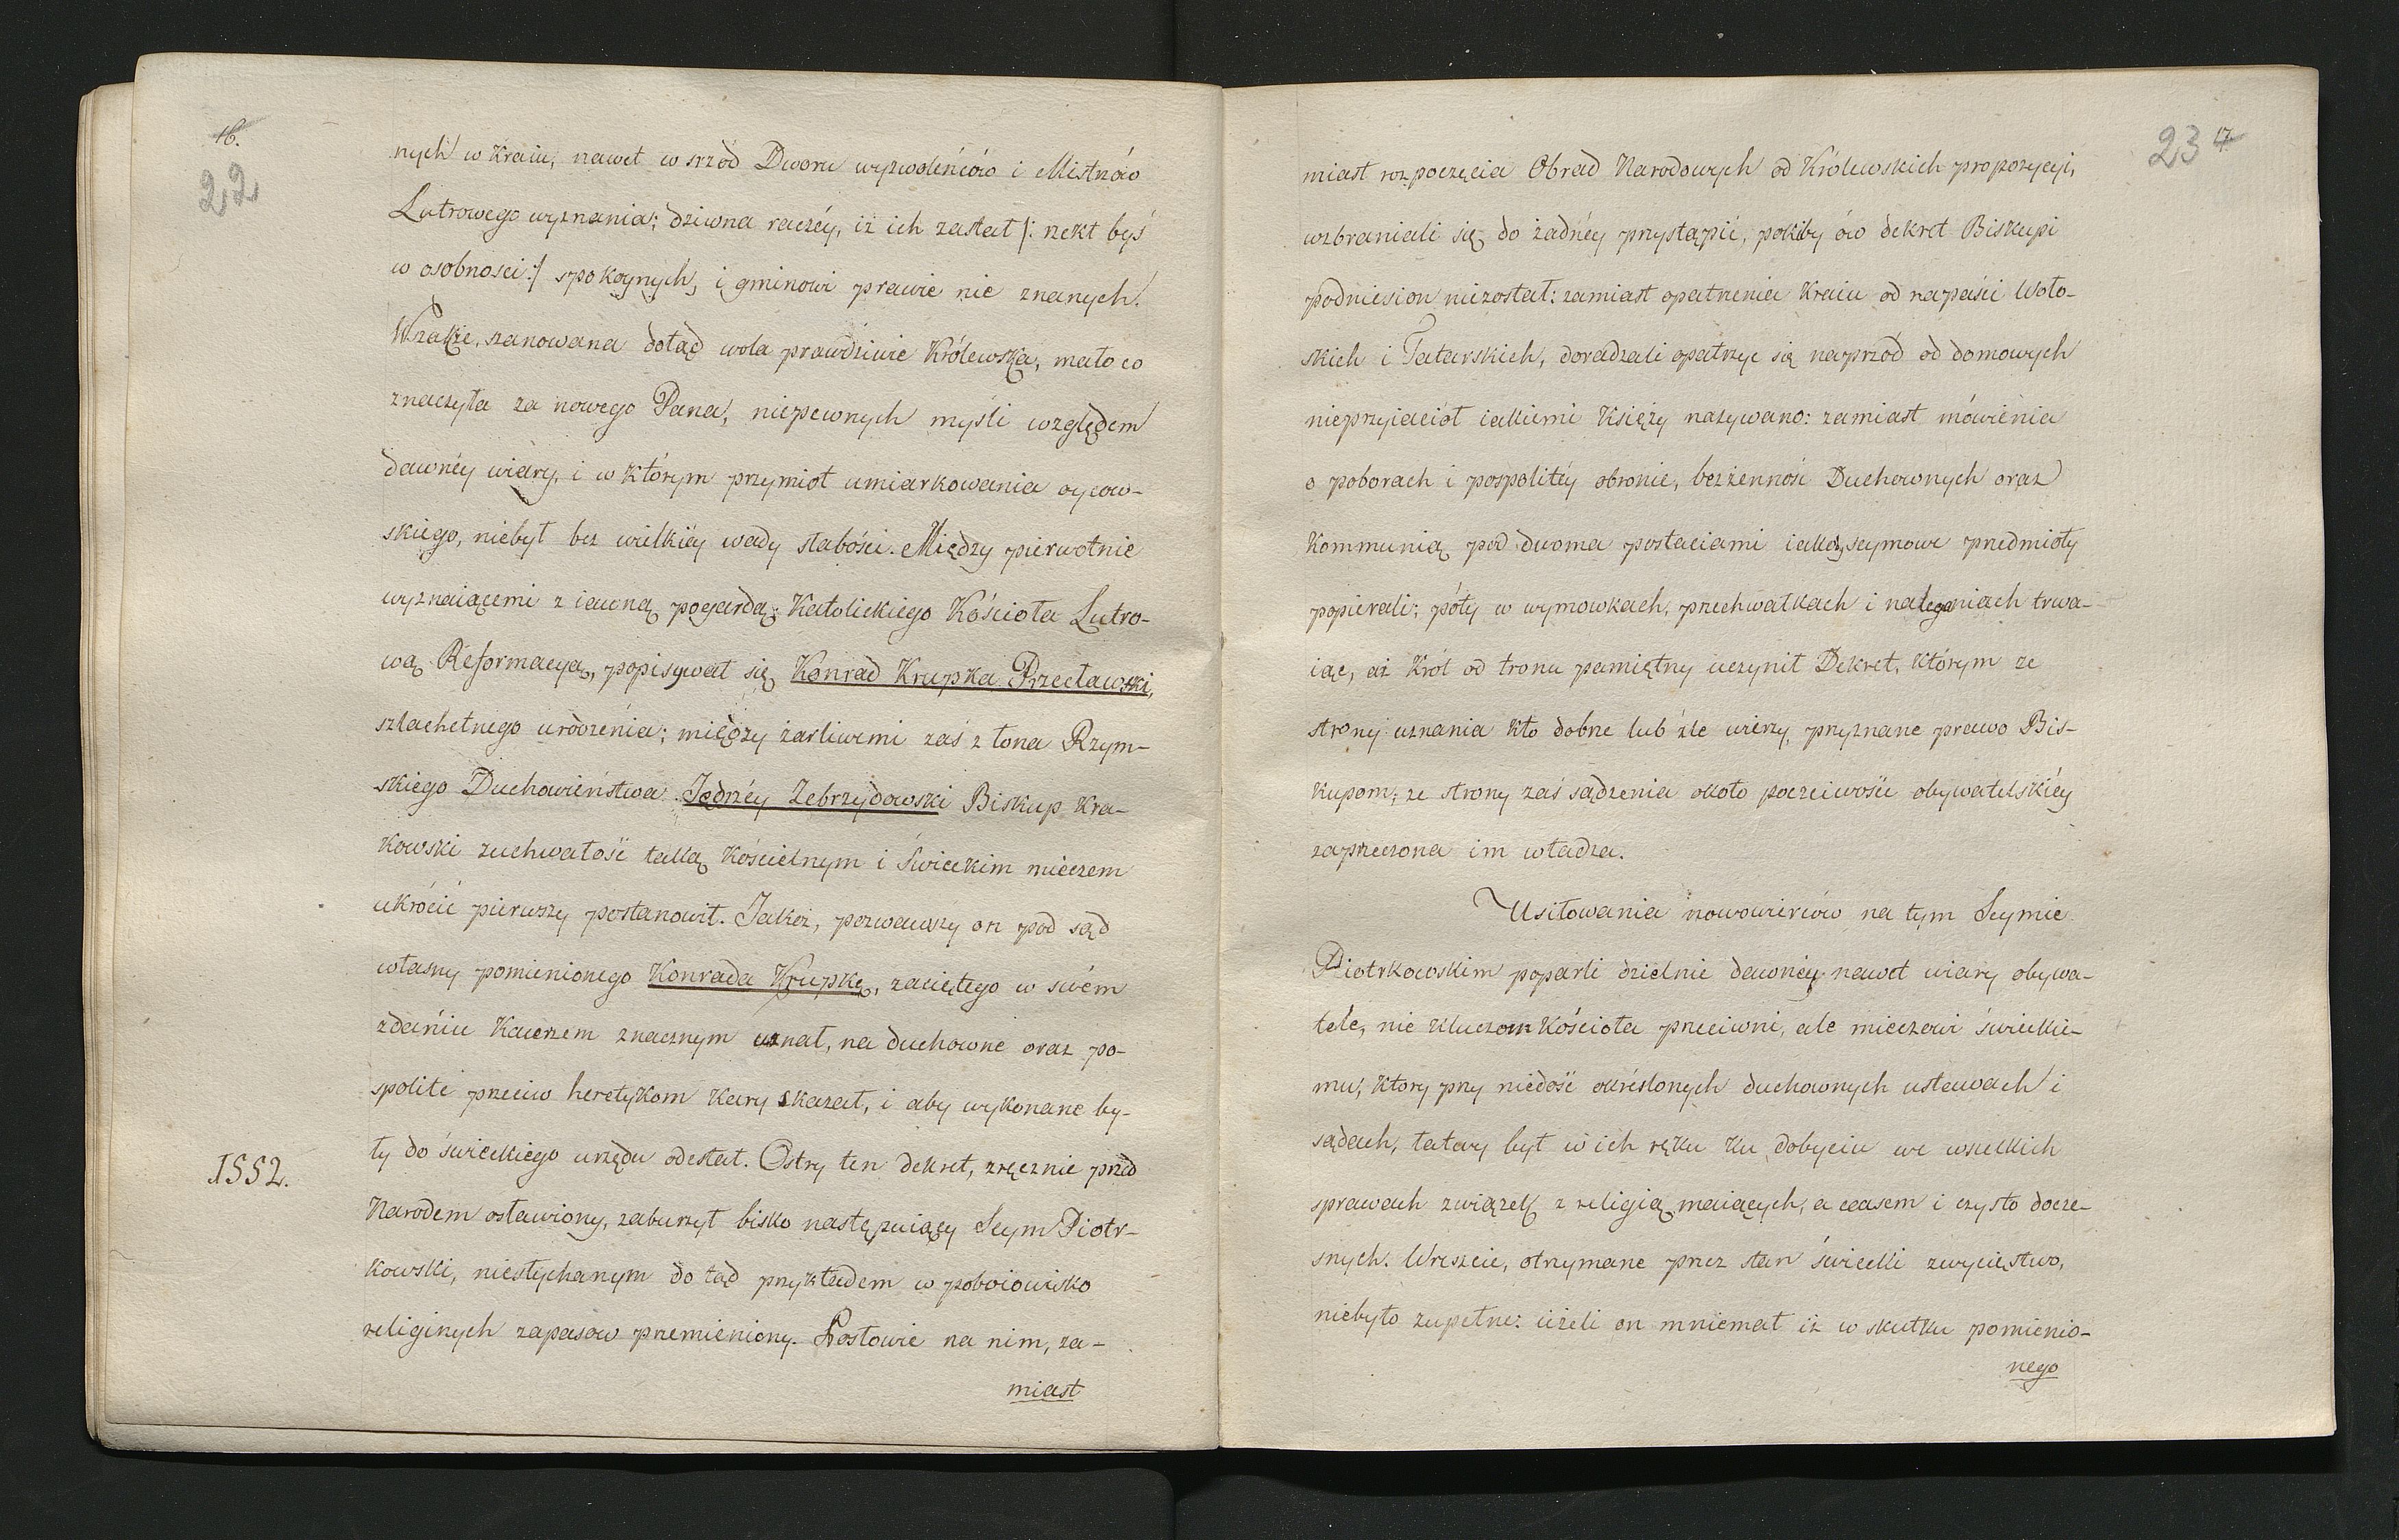 16.
22
nych w Kraiu, nawet w srzód Dworu wyzwoleńców i Mistrzów
Lutrowego wyznania; dziwna raczéy, iż ich zastał /: rzekł byś
w osobnosci :/ spokoynych, i gminowi prawie nie znanych.
Wszakże, szanowana dotąd wola prawdziwie Królewska, mało co
znaczyła za nowego Pana, niepewnych myśli względem
dawnéy wiary, i w którym przymiot umiarkowania oycow-
skiego, niebył bez wielkiéy wady słabości. Między pierwotnie
wyznaiącemi z iawną pogardą Katolickiego Kościoła Lutro-
wą Reformacyą, popisywał się Konrad Krupka Przecławski,
szlachetnego urodzenia; między żarliwemi zaś z łona Rzym-
skiego Duchowieństwa Jędrzéy Zebrzydowski Biskup Kra-
kowski zuchwałość taką Kościelnym i Świeckim mieczem
ukrócić pierwszy postanowił. Jakoż, pozwawszy on pod sąd
własny pomienionego Konrada Krupkę, zaciętego w swém
zdaniu Kacerzem znacznym uznał, na duchowne oraz po-
spolite przeciw heretykom kary skazał, i aby wykonane by-
1552.
ły do świeckiego urzędu odesłał. Ostry ten dekret, zręcznie przed
Narodem osławiony, zaburzył blisko następuiący Seym Piotr-
kowski, niesłychanym do tąd przykładem w poboiowisko
religinych zapasow przemieniony. Posłowie na nim, za-
miast
23 17
miast rozpoczęcia Obrad Narodowych od Królewskich propozycyi,
wzbraniali się do żadnéy przystąpić, pokiby ów dekret Biskupi
podniesion niezostał: zamiast opatrzenia Kraiu od napaści Woło-
skich i Tatarskich, doradzali opatrzyc się naprzód od domowych
nieprzyiaciół iakiemi Księży nazywano: zamiast mówienia
o poborach i pospolitéy obronie, bezżenność Duchownych oraz
Kommunią pod dwoma postaciami iako seymowe przedmioty
popierali; póty w wymowkach, przechwałkach i naleganiach trwa-
iąc, aż Król od tronu pamiętny uczynił Dekret, którym ze
strony uznania kto dobrze lub źle wierzy, przyznane prawo Bis-
kupom; ze strony zaś sądzenia około poczciwości obywatelskiéy
zaprzeczona im władza.
Usiłowania nowowierców na tym Seymie
Piotrkowskim poparli dzielnie dawnéy nawet wiary obywa-
tele, nie kluczom Kościoła przeciwni, ale mieczowi świeckie-
mu, który przy niedość określonych duchownych ustawach i
sądach, łatwy był w ich ręku ku dobyciu we wszelkich
sprawach związek z religią maiących, a czasem i czysto docze-
snych. Wreszcie, otrzymane przez stan świecki zwycięstwo,
niebyło zupełne: ieżeli on mniemał iż w skutku pomienio-
nego